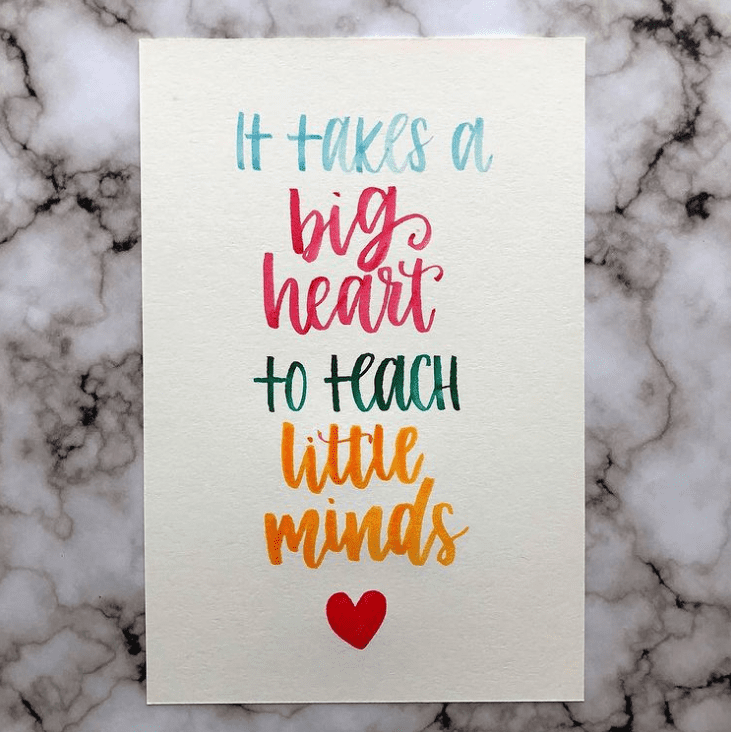 It takes a
big
heart
to teach
little
minds